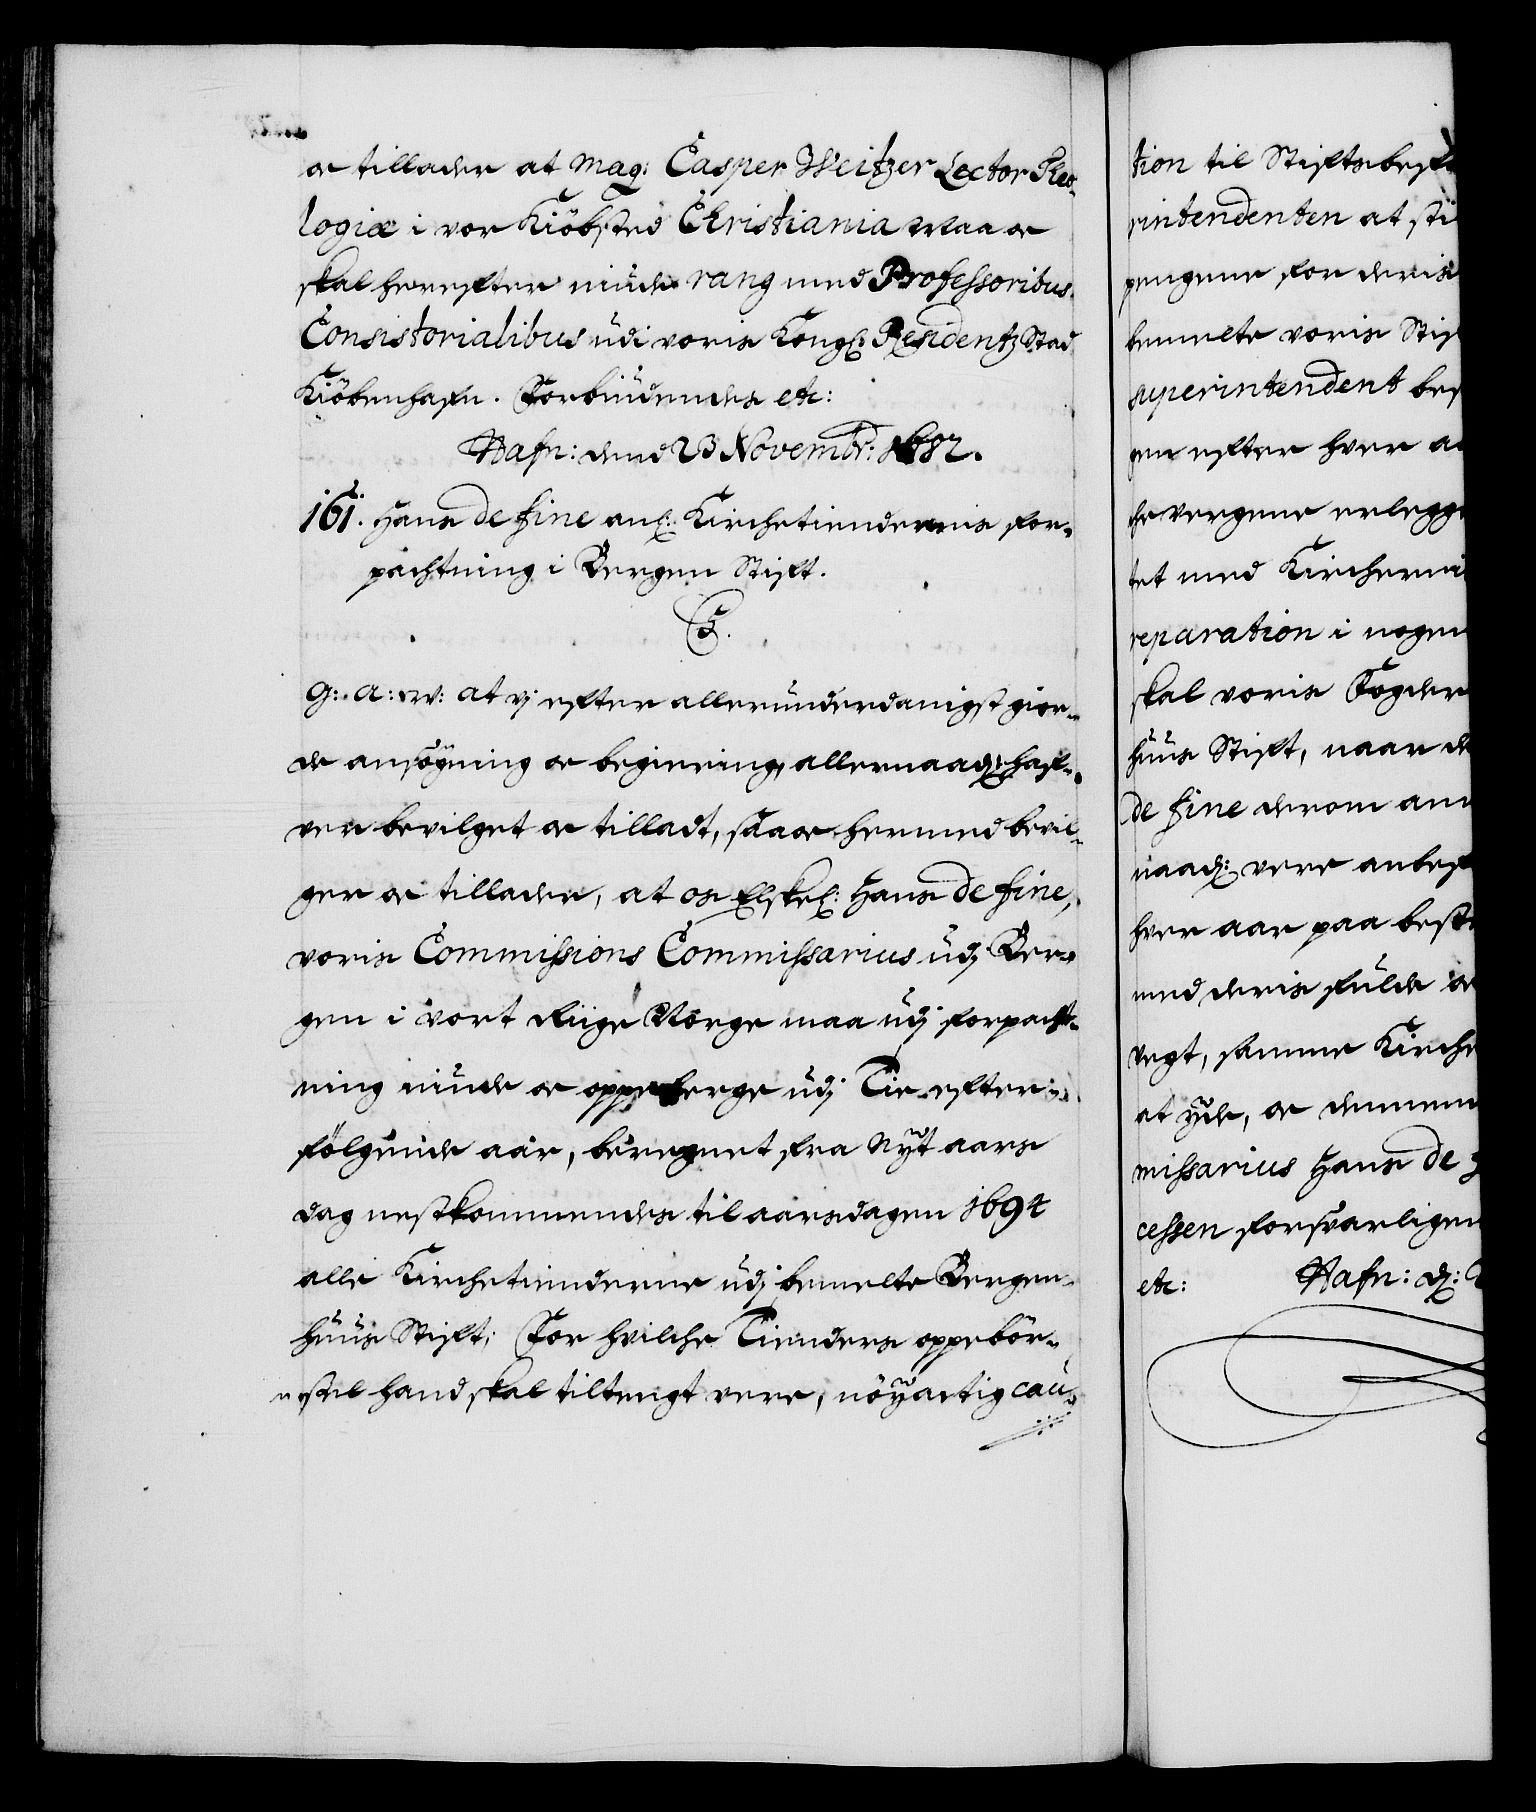 oc tillader at Mag: Casper Weitzer Lector Theo-
logiæ i vor Kiöbsted Christiania maa oc
skal herefter niude rang med Professoribus
Consistorialibus udi voris Kongl: Residentz Stad
Kiöbenhafn. Forbiudendes etc:
Hafn: dend 23 Novembr: 1682.
161. Hans de fine anl: Kirchetiendernis for-
pachtning i Bergen Stift.
C5.
G: A: W: at vj efter allerunderdanigst gior-
de ansögning oc begiering, allernaadl: haf-
ver bevilget oc tilladt, saa oc hermed bevil-
ger oc tillader, at os Elskel: Hans de fine,
voris Commissions Commissarius udj Ber-
gen i vort Riige Norge maa udj forpacht-
ning niude oc oppeberge udj Tie efter-
fölgende aar, beregnet fra Nyt aars
dag nestkommendes til aarsdagen 1694
alle Kirchetienderne udj bemelte Bergen-
huus Stift; For hvilche Tienders oppebör-
sel hand skal tiltengt vere, nöyactig cau-
tion til Stiftsbef
rintendenten at sti
pengene for deris
bemelte voris Stif
superintendent bef
gen efter hver a
che vergene erlegge
tet med Kirchern
reparation i nogen
skal voris Fogder
huus Stift, naar d
de fine derom an
naadl: vere anbef
hver aar paa beste
med deris fulde oc
vegt, samme Kirche
at yde, oc dennem
missarius Hans de f
cessen forsvarligen
etc: Hafn: d: